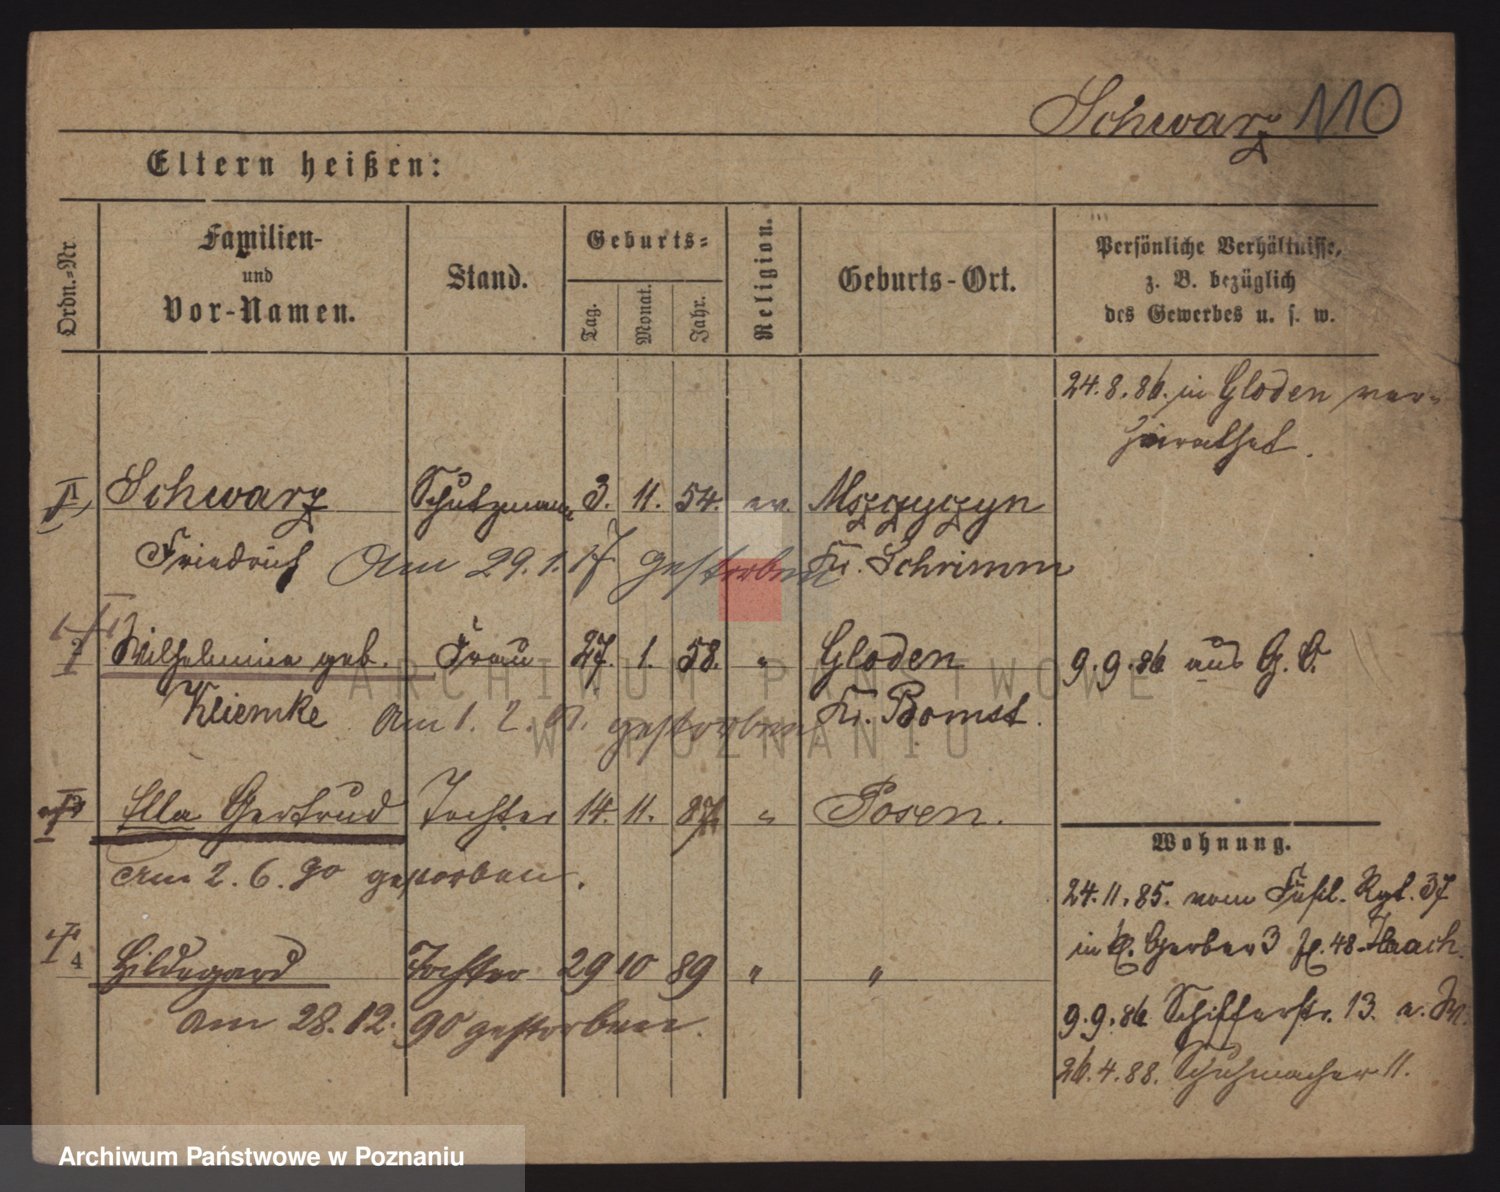 Schwarz 110
Eltern heißen:
Ordn.-Nr.
Familien-
und
Vor-Namen.
Stand.
Geburts-
Tag.
Monat.
Jahr.
Religion.
Geburts-Ort.
Persönliche Verhältnisse,
z. B. bezüglich
des Gewerbes u. s. w.
24.8.86. in Gloden ver-
heirathet.
1 Schwarz Schutzmann 3. 11. 54. ev. Mszczyczyn
Friedrich Am 29.1.17 gestorben Kr. Schrimm
2 Wilhelmine geb. Frau 27. 1. 58. " Gloden 9.9.86 aus G. O.
Kliemke Am 1. 2. gestorben Kr. Bomst.
3 Ella Gertrud Tochter 14. 11. 87. " Posen.
am 2.6.90 gestorben.
4 Hildegard Tochter 29 10 89 " "
am 28.12.90 gestorben.
Wohnung.
24.11.85. vom Füsl. Rgt. 37
in Gerber 3 48 Haach.
9.9.86 Schifferstr. 13. a. W.
26.4.88. Schuhmacher 11.
ARCHIWUM PAŃSTWOWE
W POZNANIU
Archiwum Państwowe w Poznaniu